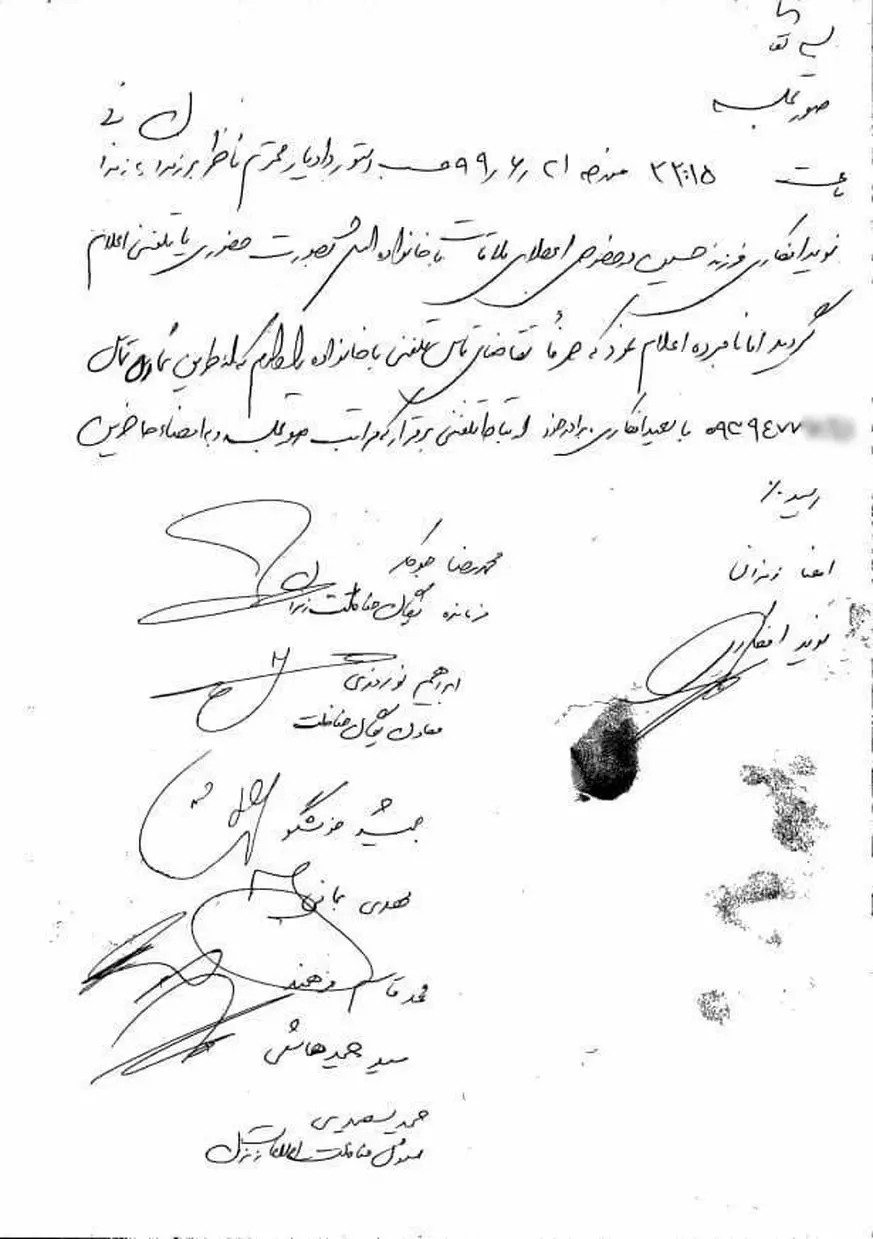 بسمه تعالی
صورتجلسه
ساعت ۲۲:۱۵ مورخه ۹۹/۶/۲۱ حسب دستور دادیار محترم ناظر بر زندان به زندانی
نوید افکاری فرزند حسین در خصوص اعطای ملاقات با خانواده اش بصورت حضوری یا تلفنی اعلام
گردید اما نامبرده اعلام نمود که صرفاً تقاضای تماس تلفنی با خانواده را دارم که از طریق شماره تماس
۰۹۳۹۴۷۷ با سعید افکاری برادر خود ارتباط تلفنی برقرار که مراتب صورتجلسه و به امضاء حاضرین
رسید./
امضا زندانی
نوید افکاری
محمدرضا جوکار
فرمانده یگان حفاظت زندان
ابراهیم نوروزی
معاون یگان حفاظت
جمشید خوشگو
مهدی
محمد قاسم فرهمند
سید حمید هاشمی
حفاظت اطلاعات زندان